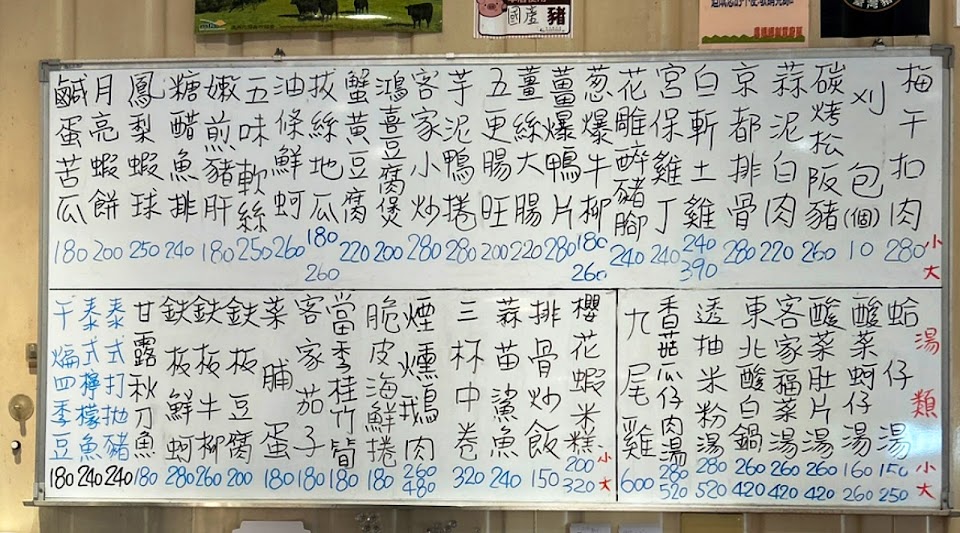 國產豬
小 大
梅干扣肉 280
刈包(個) 10
碳烤松阪豬 260
蒜泥白肉 220
京都排骨 280
白斬土雞 240 390
宮保雞丁 240
花雕醉豬腳 240
葱爆牛柳 180 260
薑爆鴨片 280
薑絲大腸 220
五更腸旺 200
芋泥鴨捲 280
客家小炒 280
鴻喜豆腐煲 200
蟹黃豆腐 220
拔絲地瓜 180 260
油條鮮蚵 260
五味軟絲 250
嫩煎豬肝 180
糖醋魚排 240
鳳梨蝦球 250
月亮蝦餅 200
鹹蛋苦瓜 180
湯類 小 大
蛤仔湯 150 250
酸菜蚵仔湯 160 260
酸菜肚片湯 260 420
客家福菜湯 260 420
東北酸白鍋 260 420
透抽米粉湯 280 520
香菇瓜仔肉湯 280 520
九尾雞 600
櫻花蝦米糕 200 320 小 大
排骨炒飯 150
蒜苗鯊魚 240
三杯中卷 320
煙燻鵝肉 260 480
脆皮海鮮捲 180
當季桂竹筍 180
客家茄子 180
菜脯蛋 180
鉄板豆腐 200
鉄板牛柳 260
鉄板鮮蚵 280
甘露秋刀魚 180
泰式打抛豬 240
泰式檸檬魚 240
干煸四季豆 180